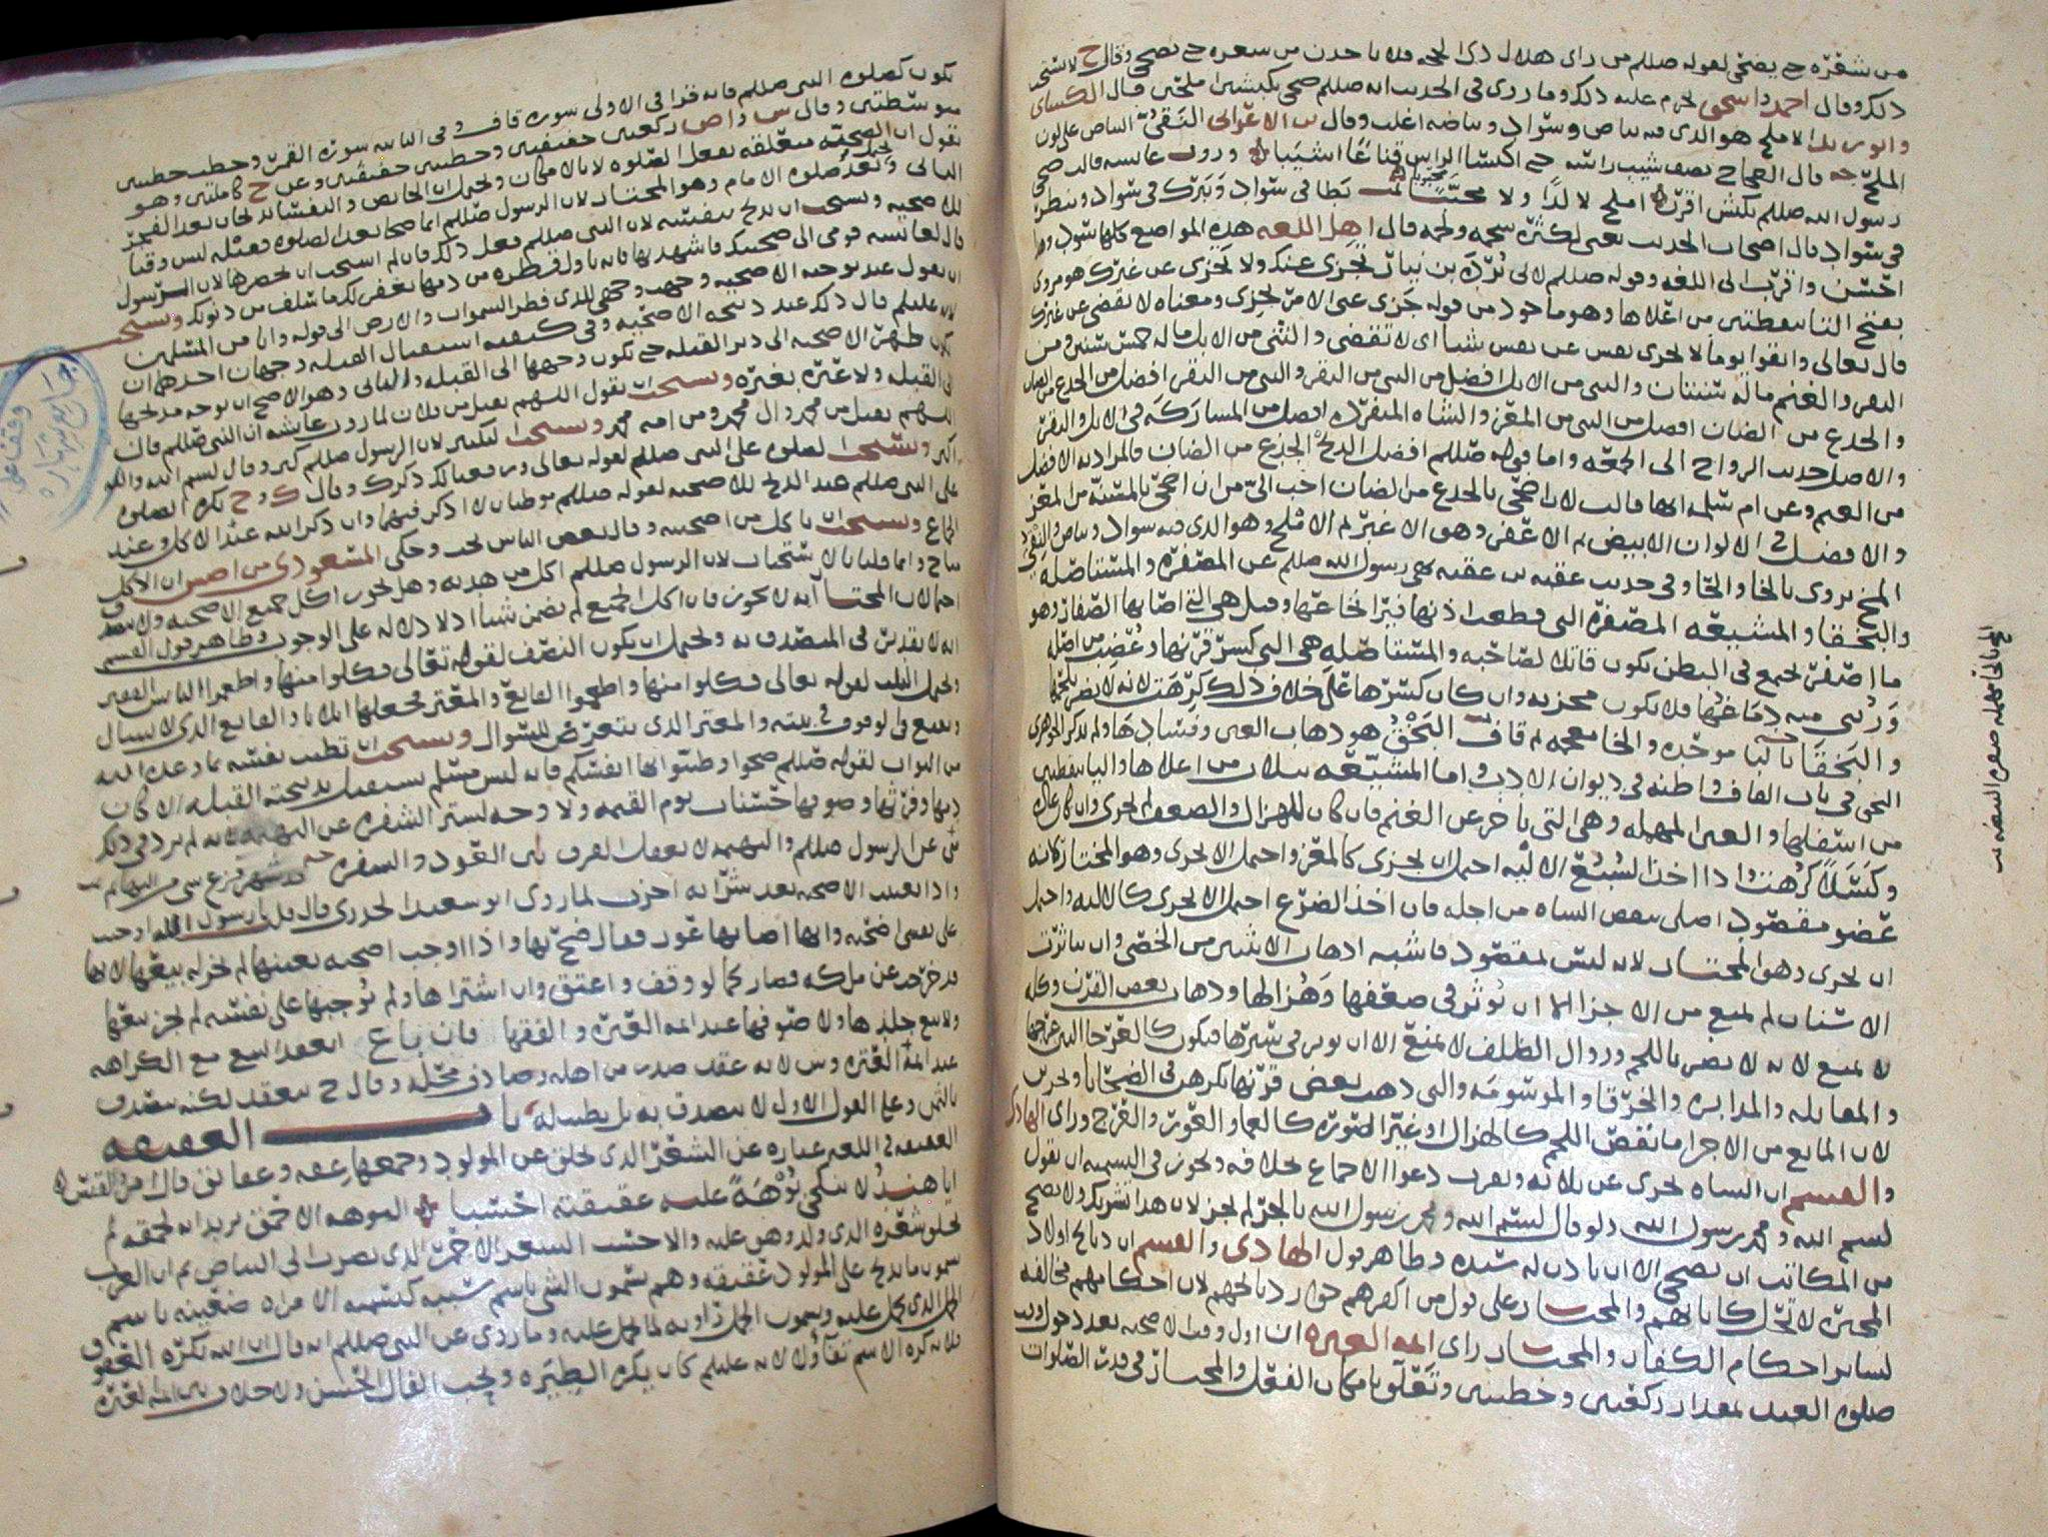 من شعره حتى يضحي لقوله صللم من راى هلال ذي الحجه فلا ياخذن من شعره حتى يضحي وقال ح لا يستحب
ذلك وقال احمد واسحق يحرم عليه ذلك وما روي في الحديث انه صللم ضحى بكبشين املحين قال الكسائي
وابو زيد الاملح هو الذي فيه بياض وسواد وبياضه اغلب وقال بن الاعرابي النقي البياض
قال العجاج نصف شيب راسه حتى اكتسا الراس قناعا اشيبا وروت عايشه قالت ضحى
رسول الله صللم بكبش اقرن املح يطا في سواد ويبرك في سواد وينظر
في سواد قال اصحاب الحديث يعني لكثرة شحمه ولحمه قال اهل اللغه هذه المواضع كلها سود وهذا
احسن واقرب الى اللغه وقوله صللم لابي بردة بن نيار تجزي عنك ولا تجزي عن غيرك هو مروي
بفتح التا بنقطتين من اعلاها وهو ماخوذ من قوله جزى عني الامر يجزي ومعناه لا تقضي عن غيرك
قال تعالى واتقوا يوما لا تجزي نفس عن نفس شيا اي لا تقضي والثني من الابل ما له خمس سنين ومن
البقر والغنم ما له سنتان والثني من الابل افضل من الثني من البقر والثني من البقر افضل من الجذع من الضان
والجذع من الضان افضل من الثني من المعز والشاه المنفرده افضل من المشاركه في الابل والبقر
والاصل حديث الرواح الى الجمعه واما قوله صللم افضل الذبح الجذع من الضان فالمراد به الافضل
من الغنم وعن ام سلمه انها قالت لان اضحي بالجذع من الضان احب الي من ان اضحي بالمسنة من المعز
والافضل في الالوان الابيض ثم الاعفر وهو الاغبر ثم الاملح وهو الذي فيه سواد وبياض
يروى بالخا والحا وفي حديث عقبه بن عقبه نهى رسول الله صللم عن المصفره والمستاصله
والبخقا والمشيعه المصفره التي قطعت اذنها وقيل هي التي اصابها الصفار وهو
ما اصفر يجمع في البطن يكون قاتلا لصاحبه والمستاصله هي التي كسر قرنها وعضب من اصله
فلا تكون مجزيه وان كان كسرها على خلاف ذلك كرهت لانه لا يضر بلحمها
والبخقا بالبا موحده والخا معجمه ثم قاف البخق هو ذهاب العين وفسادها ولم يذكر الجوهري
البخق في باب القاف في ديوان الادب واما المشيعه بثلاث من اعلاها واليا بنقطتين
من اسفلها والعين المهمله وهي التي تاخر عن الغنم فان كان للهزال والضعف لم تجزي وان كان
وكسلا كرهت واذا اخذ السبع الاليه احتمل ان تجزي كالمعز واحتمل الا تجزي وهو المختار لانه
عضو مقصود اصلي ينقص الشاه من اجله فان اخذ الضرع احتمل الا تجزي كالاليه واحتمل
ان تجزي وهو المختار لانه ليس بمقصود فاشبه ذهاب الانثيين من الخصي وان تناثرت
الاسنان لم يمنع من الاجزا الا ان يوثر في ضعفها وهزالها وذهاب بعض القرن وكله
لا يمنع لانه لا يضر باللحم وزوال الظلف لا يمنع الا ان يوثر في سيرها فيكون كالعرجا البين عرجها
والمقابله والمدابره والخرقا والموسومه والتي ذهب بعض قرنها يكرهن في الضحايا ويجزين
لان المانع من الاجزا ما نقص اللحم كالهزال او غير الصوره كالعما والعور والعرج وراى الهادي
والقسم ان الشاه تجزي عن ثلاثه ونعرف دعوا الاجماع بخلافه ويجوز في التسميه ان يقول
بسم الله ومحمد رسول الله ولو قال بسم الله ومحمد رسول الله بالجر لم يجز لان هذا تشريك ولا يصح
من المكاتب ان يضحي الا ان ياذن له سيده وظاهر قول الهادي والقسم ان ذبايح اولاد
المجبره لا تحل كابايهم والمختار على قول من اكفرهم جواز ذبايحهم لان احكامهم مخالفه
لساير احكام الكفار والمختار راى ايمه العتره ان اول وقت الاضحيه بعد دخول وقت
صلوه العيد بمقدار ركعتين وخطبتين وتعلق بامكان الفعل والمختار في قدر الصلوات
يكون كصلوه النبي صللم فانه قرا في الاولى سوره قاف وفي الثانيه سوره القمر وخطب خطبتين
متوسطتين وقال ش و ا ص ركعتين خفيفتين وخطبتين خفيفتين وعن ح كاملتين وهو
نقول ان الاضحيه متعلقه بفعل الصلوه لا بالامكان
التالي وبعد صلوه الامام وهو المختار لان الرسول صللم انما ضحا بعد الصلوه وقبله ليس وقتا
للاضحيه ويستحب ان يذبح بنفسه لان النبي صللم فعل ذلك فان لم استحب ان يحضرها لان الرسول
قال لعايشه قومي الى اضحيتك فاشهديها فانه باول قطره من دمها يغفر لك ما سلف من ذنوبك ويستحب
ان يقول عند توجيه الاضحيه وجهت وجهي للذي فطر السموات والارض الى قوله وانا من المسلمين
لانه عليلم قال ذلك عند ذبحه الاضحيه وفي كيفيه استقبال القبله وجهان احدهما ان
يكون ظهر الاضحيه الى دبر القبله حتى يكون وجهها الى القبله والثاني وهو الاصح ان يوجه مذبحها
الى القبله ولا عبره بغيره ويستحب ان يقول اللهم تقبل من فلان لما روت عايشه ان النبي صللم قال
اللهم تقبل من محمد وال محمد ومن امه محمد ويستحب التكبير لان الرسول صللم كبر وقال بسم الله والله
اكبر ويستحب الصلوه على النبي صللم لقوله تعالى ورفعنا لك ذكرك وقال ك و ح تكره الصلوه
على النبي صللم عند الذبح للاضحيه لقوله صللم موطنان لا اذكر فيهما وان ذكر الله عند الاكل وعند
الجماع ويستحب ان ياكل من اضحيته وقال بعض الناس يجب وحكى المسعودي من اصش ان الاكل
مباح وانما قلنا بالاستحباب لان الرسول صللم اكل من هديه وهل يجوز اكل جميع الاضحيه
احتمالان المختار انه لا يجوز فان اكل الجميع لم يضمن شيا اذ لا دلاله على الوجوب وظاهر قول القسم
انه لا تقدير في المتصدق به ويحتمل ان يكون النصف لقوله تعالى فكلوا منها واطعموا البائس الفقير
ويحتمل الثلث لقوله تعالى فكلوا منها واطعموا القانع والمعتر فجعلها اثلاثا والقانع الذي لا يسال
ويقنع في بيته والمعتر الذي يتعرض للسوال ويستحب ان تطيب نفسه بما وعد الله
من الثواب لقوله صللم ضحوا وطيبوا بها انفسكم فانه ليس مسلم يستقبل بذبيحته القبله الا كان
دمها وفرثها وصوفها حسنات يوم القيمه ولا وجه لستر الشفره عن البهيمه فانه لم يرد في ذلك
شي عن الرسول صللم والبهيمه لا تعقل الفرق بين العود والشفره
واذا تعيبت الاضحيه بعد شرايه اجزت لما روى ابو سعيد الخدري قال قلت يا رسول الله اوجبت
على نفسي اضحيه وانها اصابها عور فقال ضح بها واذا اوجب اضحيه بعينها لم يجز له بيعها لانها
قد خرجت عن ملكه فصار كما لو وقف واعتق وان اشتراها ولم يوجبها على نفسه لم يجز بيعها
ولا بيع جلدها ولا صوفها عند ايمه العتره والفقها فان باع انعقد البيع مع الكراهه
عند ايمه العتره وش لانه عقد صدر من اهله وصادف محله وقال ح ينعقد لكنه يتصدق
بالثمن وعلى القول الاول لا يتصدق به بل يطيب له باب العقيقه
العقيقه في اللغه عباره عن الشعر الذي يحلق عن المولود وجمعها عقق وعقايق قال امرؤ القيس
ايا هند لا تنكحي بوهة عليه عقيقته احسبا البوهه الاحمق يريد انه لحمقه لم
يحلق شعره الذي ولد وهو عليه والاحسب الشعر الاحمر الذي يضرب الى البياض ثم ان العرب
سموا ما يذبح على المولود عقيقه وهم يسمون الشي باسم سببه كتسميه الامراه ضعينه باسم
الجمل الذي تحمل عليه ويسمون الجمل راويه لما يحمل عليه وما روي عن النبي صللم انه قال ان الله يكره العقوق
فلانه كره الاسم تفاؤلا لانه عليلم كان يكره الطيره ويحب الفال الحسن ولا خلاف بين ايمه العتره